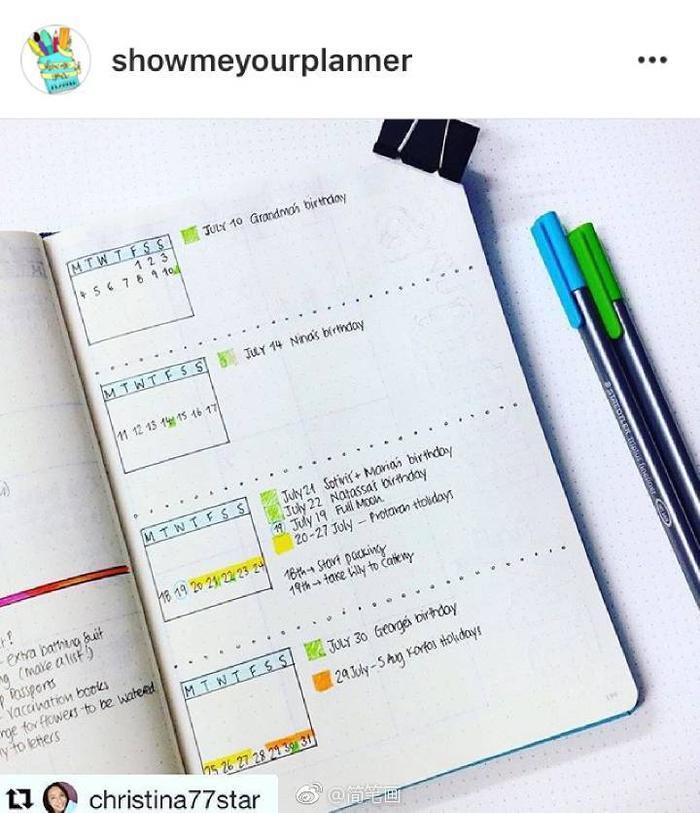 showmeyourplanner
M T W T F S S
1 2 3
4 5 6 7 8 9 10
JULY 10 Grandma's birthday
M T W T F S S
11 12 13 14 15 16 17
JULY 14 Nina's birthday
M T W T F S S
18 19 20 21 22 23 24
July 21 Sotiris + Maria's birthday
July 22 Natassa's birthday
19 July 19 Full Moon
20-27 July - Protaras Holidays
18th → Start packing
19th → take Lily to Cattery
M T W T F S S
25 26 27 28 29 30 31
JULY 30 George's birthday
29 July - 5 Aug Korfos Holidays
extra bathing suit
(make a list!)
Passports
vaccination books
for flowers to be watered
to letters
STAEDTLER triplus fineliner
christina77star
@简笔画